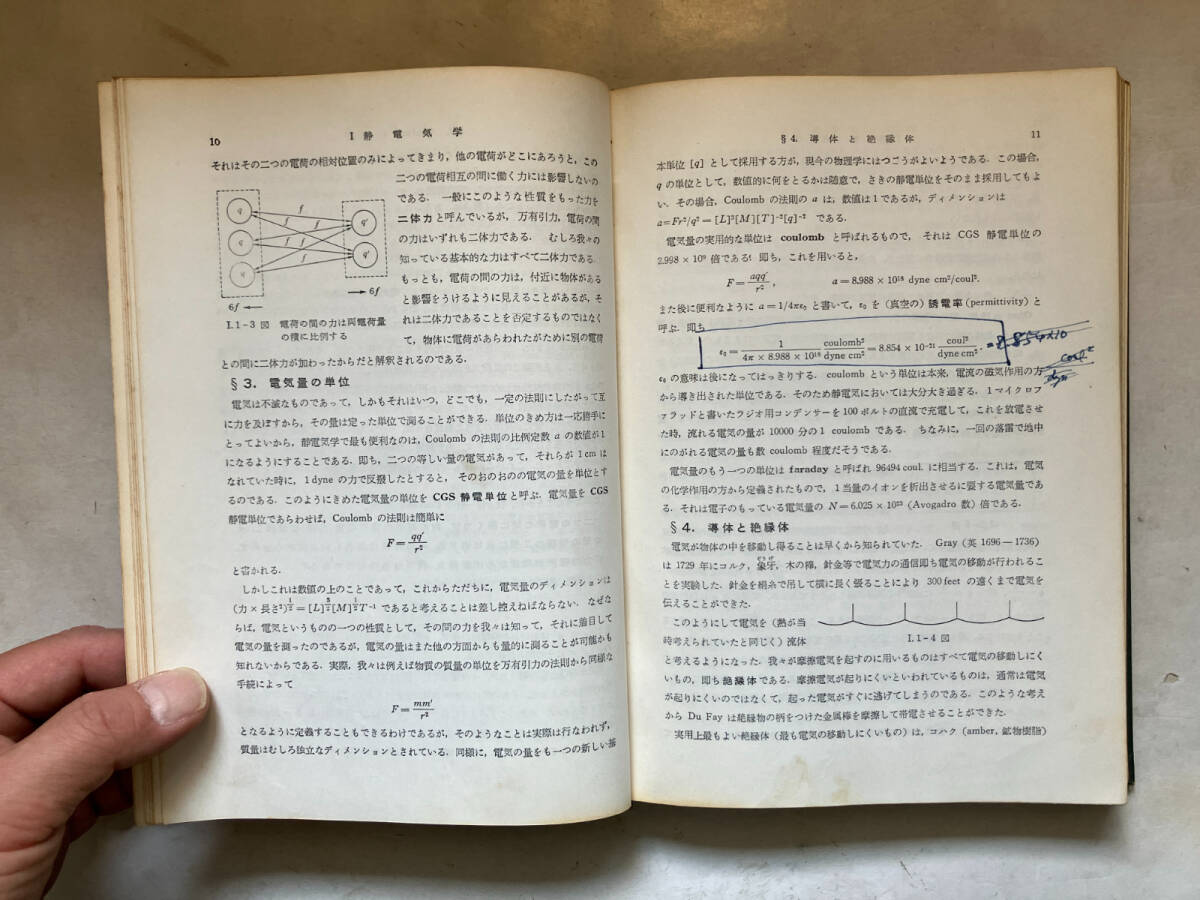 10
I 静電気学
それはその二つの電荷の相対位置のみによってきまり，他の電荷がどこにあろうと，この
二つの電荷相互の間に働く力には影響しないの
である．一般にこのような性質をもった力を
二体力と呼んでいるが，万有引力，電荷の間
の力はいずれも二体力である．むしろ我々の
知っている基本的な力はすべて二体力である．
もっとも，電荷の間の力は，付近に物体がある
と影響をうけるように見えることがあるが，そ
れは二体力であることを否定するものではなく
て，物体に電荷があらわれたがために別の電荷
q
q
q
q'
q'
f
f
f
f
f
f
6f ←
→ 6f
I.1-3 図 電荷の間の力は両電荷量
の積に比例する
との間に二体力が加わったからだと解釈されるのである．
§3. 電気量の単位
電気は不滅なものであって，しかもそれはいつ，どこでも，一定の法則にしたがって互
に力を及ぼすから，その量は定った単位で測ることができる．単位のきめ方は一応勝手に
とってよいから，静電気学で最も便利なのは，Coulomb の法則の比例定数 a の数値が1
になるようにすることである．即ち，二つの等しい量の電気があって，それらが 1cm は
なれていた時に，1dyne の力で反撥したとすると，そのおのおの電気の量を単位とす
るのである．このようにきめた電気量の単位を CGS 静電単位と呼ぶ．電気量を CGS
静電単位であらわせば，Coulomb の法則は簡単に
F = qq'/r²
と書かれる．
しかしこれは数値の上のことであって，これからただちに，電気量のディメンションは
(力×長さ²)^½=[L]^{3/2}[M]^½T⁻¹ であると考えることは差し控えねばならない．なぜな
らば，電気というものの一つの性質として，その間の力を我々は知って，それに着目して
電気の量を測ったのであるが，電気の量はまた他の方面からも量的に測ることが可能かも
知れないからである．実際，我々は例えば物質の質量の単位を万有引力の法則から同様な
手続によって
F = mm'/r²
となるように定義することもできるわけであるが，そのようなことは実際は行なわれず，
質量はむしろ独立なディメンションとされている．同様に，電気の量をも一つの新しい基
§4. 導体と絶縁体
11
本単位 [q] として採用する方が，現今の物理学にはつごうがよいようである．この場合，
q の単位として，数値的に何をとるかは随意で，さきの静電単位をそのまま採用してもよ
い．その場合，Coulomb の法則の a は，数値は1であるが，ディメンションは
a=Fr²/q²=[L]³[M][T]⁻²[q]⁻² である．
電気量の実用的な単位は coulomb と呼ばれるもので，それは CGS 静電単位の
2.998 × 10⁹ 倍である．即ち，これを用いると，
F = aqq'/r², a = 8.988 × 10¹⁸ dyne cm²/coul².
また後に便利なように a=1/4πε₀ と書いて，ε₀ を（真空の）誘電率 (permittivity) と
呼ぶ．即ち
ε₀ = 1/(4π × 8.988 × 10¹⁸) coulomb²/dyne cm² = 8.854 × 10⁻²¹ coul²/dyne cm².
= 8.854×10
coul²
dyn
ε₀ の意味は後になってはっきりする．coulomb という単位は本来，電流の磁気作用の方
から導き出された単位である．そのため静電気においては大分大き過ぎる．1マイクロフ
ァラッドと書いたラジオ用コンデンサーを100ボルトの直流で充電して，これを放電させ
た時，流れる電気の量が 10000 分の1 coulomb である．ちなみに，一回の落雷で地中
にのがれる電気の量も数 coulomb 程度だそうである．
電気量のもう一つの単位は faraday と呼ばれ 96494 coul. に相当する．これは，電気
の化学作用の方から定義されたもので，1当量のイオンを析出させるに要する電気量であ
る．それは電子のもっている電気量の N=6.025 × 10²³ (Avogadro 数) 倍である．
§4. 導体と絶縁体
電気が物体の中を移動し得ることは早くから知られていた．Gray (英 1696—1736)
は 1729 年にコルク，象牙，木の棒，針金等で電気力の通信即ち電気の移動が行われるこ
とを実験した．針金を絹糸で吊して横に長く張ることにより 300 feet の遠くまで電気を
伝えることができた．
このようにして電気を（熱が当
時考えられていたと同じく）流体
I.1-4 図
と考えるようになった．我々が摩擦電気を起すのに用いるものはすべて電気の移動しにく
いもの，即ち絶縁体である．摩擦電気が起りにくいといわれているものは，通常は電気
が起りにくいのではなくて，起った電気がすぐに逃げてしまうのである．このような考え
から Du Fay は絶縁物の柄をつけた金属棒を摩擦して帯電させることができた．
実用上最もよい絶縁体（最も電気の移動しにくいもの）は，コハク (amber, 鉱物樹脂)